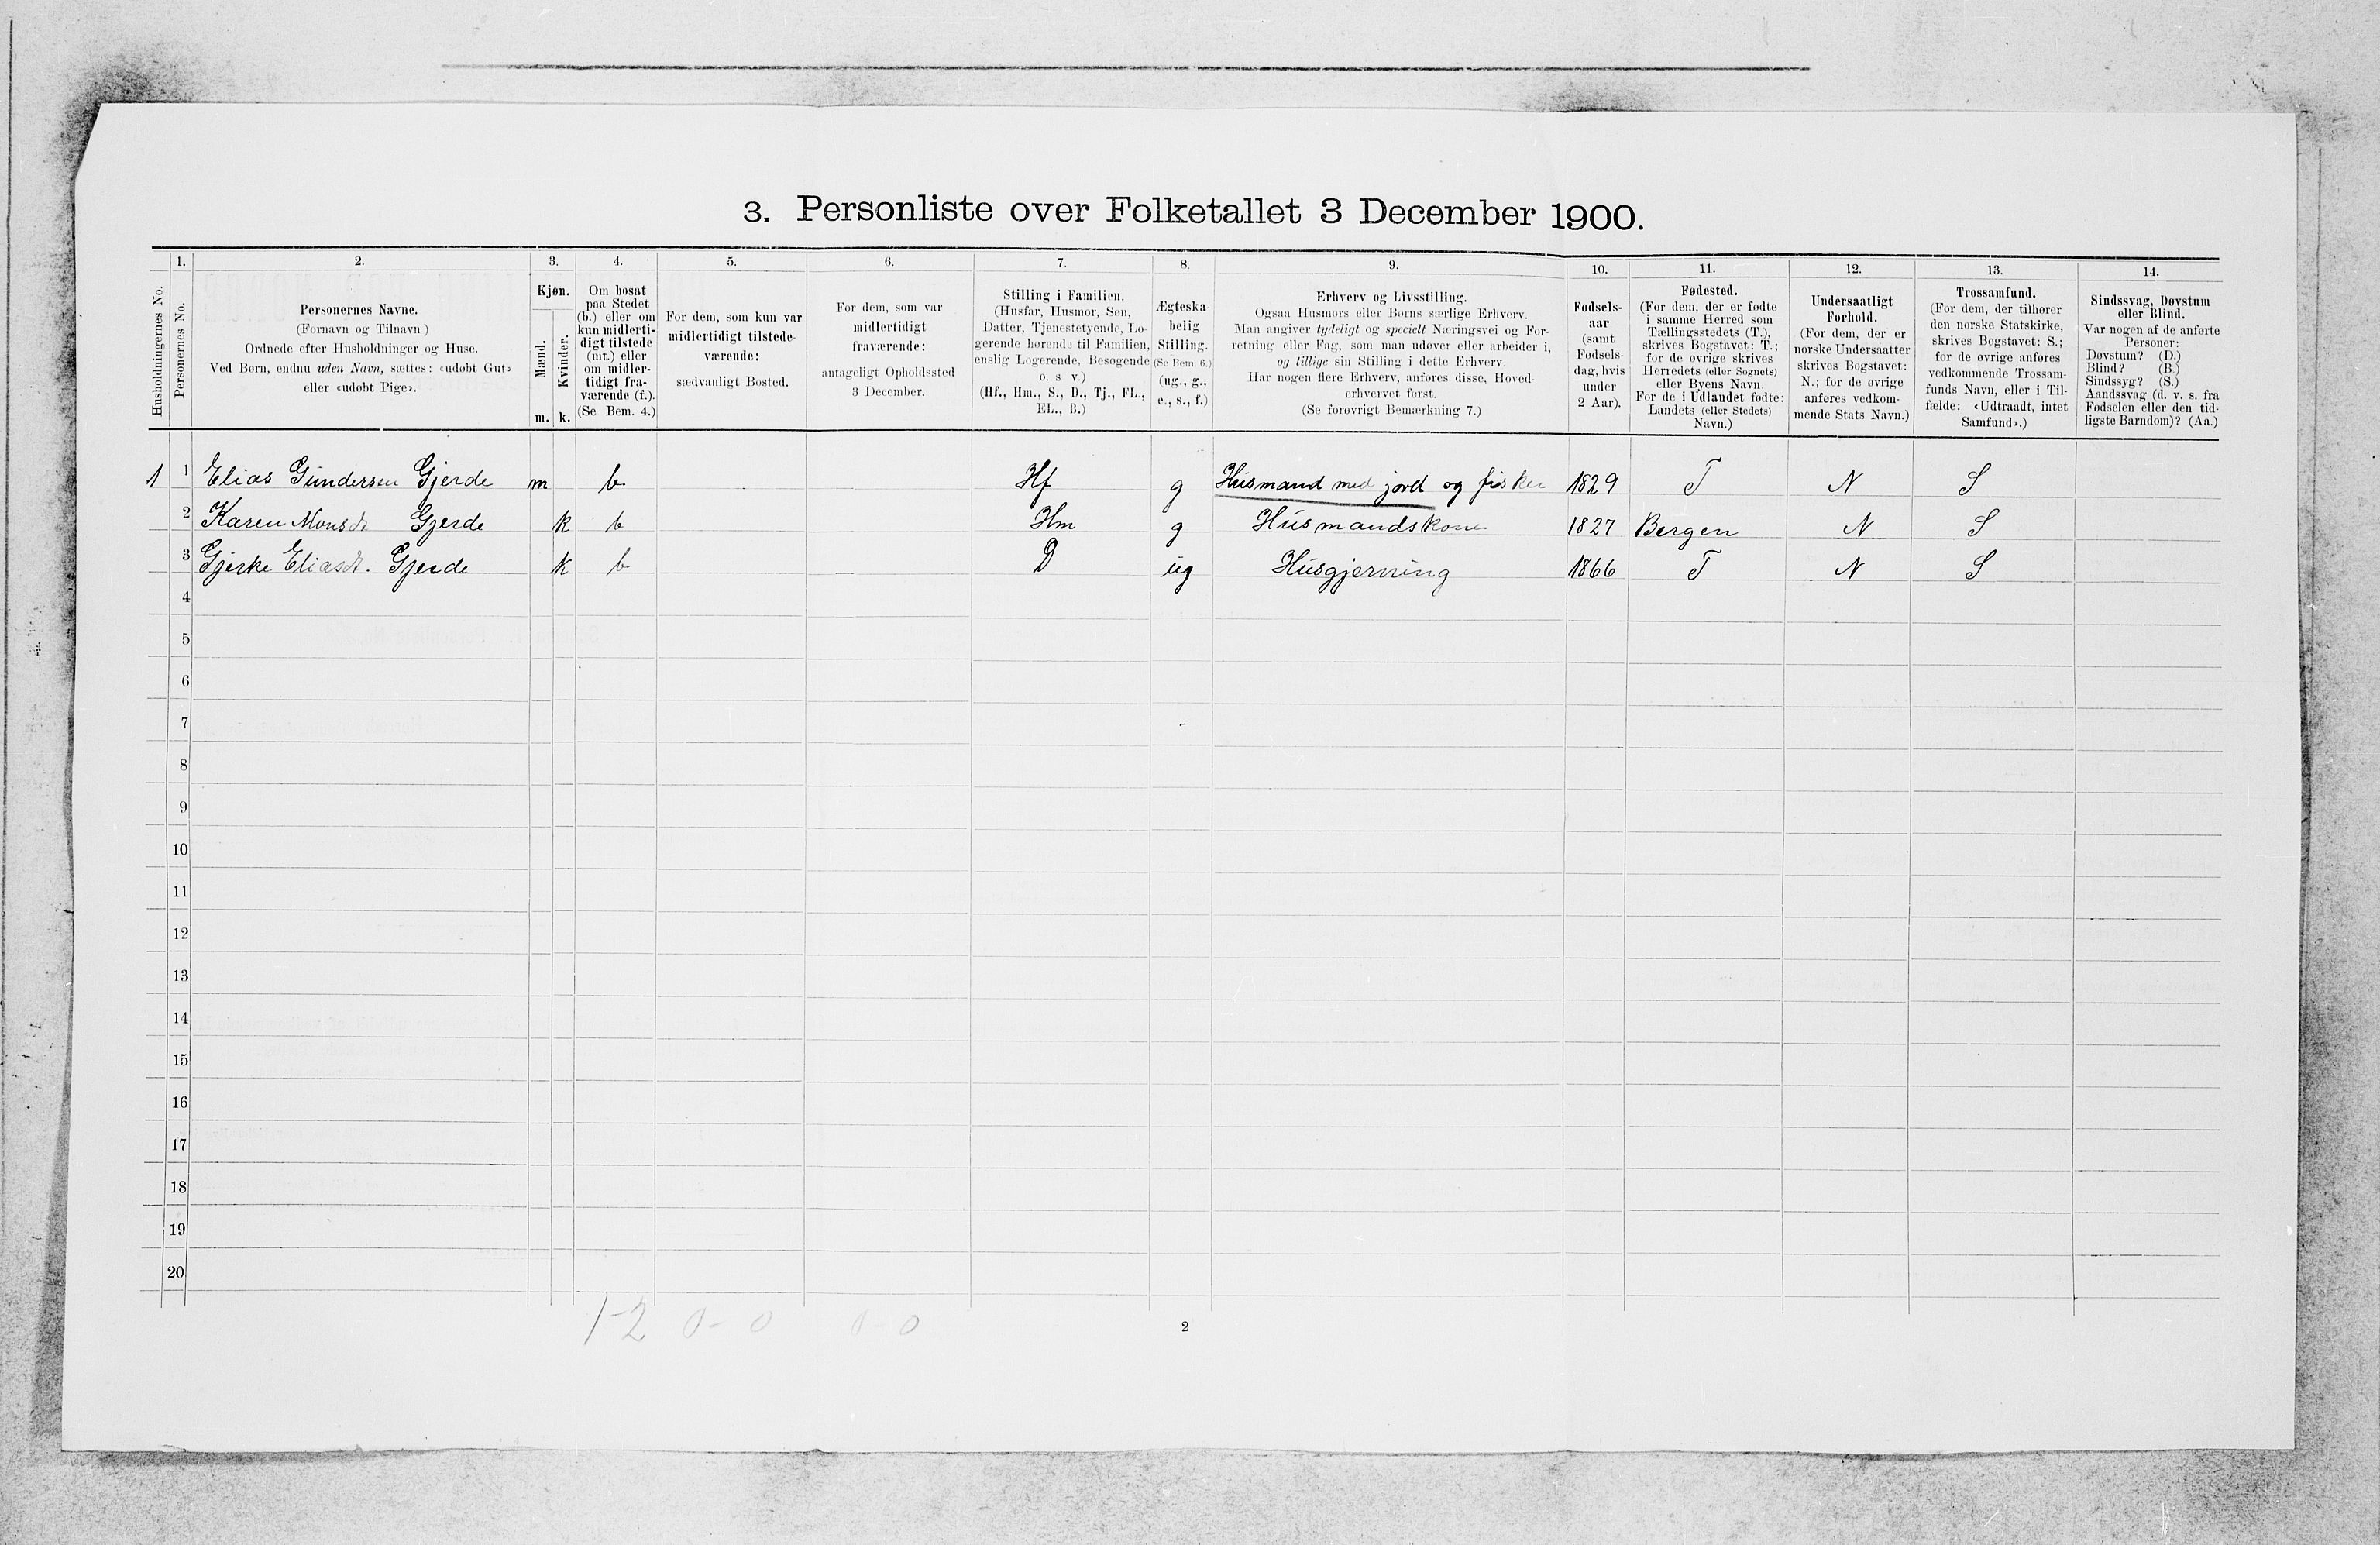 3. Personliste over Folketallet 3 December 1900.
Husholdningernes No.
1.
Personernes No.
2.
Personernes Navne.
(Fornavn og Tilnavn)
Ordnede efter Husholdninger og Huse.
Ved Børn, endnu uden Navn, sættes: «udøbt Gut»
eller «udøbt Pige».
3.
Kjøn.
Mænd.
m.
Kvinder.
k.
4.
Om bosat
paa Stedet
(b.) eller om
kun midlerti-
digt tilstede
(mt.) eller
om midler-
tidigt fra-
værende (f.).
(Se Bem. 4.)
5.
For dem, som kun var
midlertidigt tilstede-
værende:
sædvanligt Bosted.
6.
For dem, som var
midlertidigt
fraværende:
antageligt Opholdssted
3 December.
7.
Stilling i Familien.
(Husfar, Husmor, Søn,
Datter, Tjenestetyende, Lo-
gerende hørende til Familien,
enslig Logerende, Besøgende
o. s. v.)
(Hf., Hm., S., D., Tj., FL.,
EL., B.)
8.
Ægteska-
belig
Stilling.
(Se Bem. 6.)
(ug., g.,
e., s., f.)
9.
Erhverv og Livsstilling.
Ogsaa Husmors eller Børns særlige Erhverv.
Man angiver tydeligt og specielt Næringsvei og For-
retning eller Fag, som man udøver eller arbeider i,
og tillige sin Stilling i dette Erhverv.
Har nogen flere Erhverv, anføres disse, Hoved-
erhvervet først.
(Se forøvrigt Bemærkning 7.)
10.
Fødsels-
aar
(samt
Fødsels-
dag, hvis
under
2 Aar).
11.
Fødested.
(For dem, der er fødte
i samme Herred som
Tællingsstedets (T.),
skrives Bogstavet: T.;
for de øvrige skrives
Herredets (eller Sognets)
eller Byens Navn.
For de i Udlandet fødte:
Landets (eller Stedets)
Navn.)
12.
Undersaatligt
Forhold.
(For dem, der er
norske Undersaatter
skrives Bogstavet:
N.; for de øvrige
anføres vedkom-
mende Stats Navn.)
13.
Trossamfund.
(For dem, der tilhører
den norske Statskirke,
skrives Bogstavet: S.;
for de øvrige anføres
vedkommende Trossam-
funds Navn, eller i Til-
fælde: «Udtraadt, intet
Samfund».)
14.
Sindssvag, Døvstum
eller Blind.
Var nogen af de anførte
Personer:
Døvstum? (D.)
Blind? (B.)
Sindssyg? (S.)
Aandssvag (d. v. s. fra
Fødselen eller den tid-
ligste Barndom)? (Aa.)
1 1 Elias Gundersen Gjerde m b Hf g Husmand med jord og fisker 1829 T N S
2 Karen Monsdt Gjerde k b Hm g Husmandskone 1827 Bergen N S
3 Gjerke Eliasdt. Gjerde k b D ug Husgjerning 1866 T N S
4
5
6
7
8
9
10
11
12
13
14
15
16
17
18
19
20
1-2 0-0 0-0
2